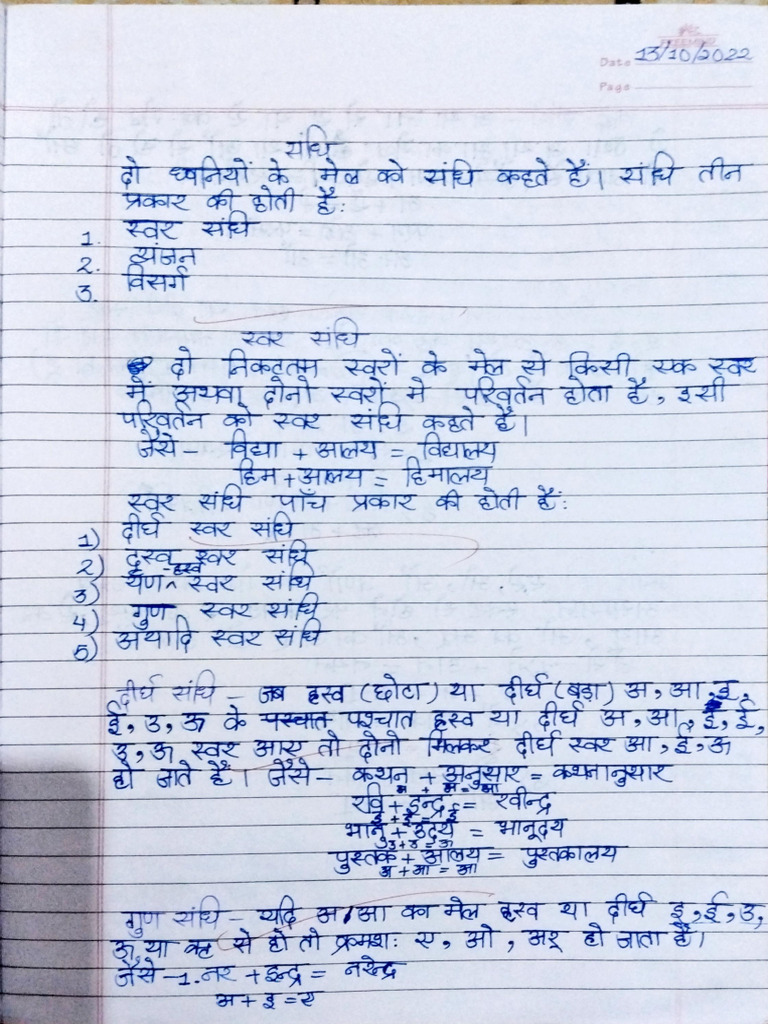 Date 13/10/2022
Page
संधि
दो ध्वनियों के मेल को संधि कहते हैं। संधि तीन
प्रकार की होती है:
1. स्वर संधि
2. व्यंजन
3. विसर्ग
स्वर संधि
दो निकटतम स्वरों के मेल से किसी एक स्वर
में अथवा दोनो स्वरों मे परिवर्तन होता है, इसी
परिवर्तन को स्वर संधि कहते है।
जैसे - विद्या + आलय = विद्यालय
हिम + आलय = हिमालय
स्वर संधि पाँच प्रकार की होती हैं:
1) दीर्घ स्वर संधि
2) स्वर संधि
3) यण स्वर संधि
4) गुण स्वर संधि
5) अयादि स्वर संधि
दीर्घ संधि - जब ह्रस्व (छोटा) या दीर्घ (बड़ा) अ, आ, इ,
ई, उ, ऊ के पश्चात ह्रस्व या दीर्घ अ, आ, इ, ई,
उ, ऊ स्वर आए तो दोनो मिलकर दीर्घ स्वर आ, ई, ऊ
हो जाते हैं। जैसे - कथन + अनुसार = कथनानुसार
अ + अ = आ
रवि + इन्द्र = रवीन्द्र
इ + इ = ई
भानु + उदय = भानूदय
उ + उ = ऊ
पुस्तक + आलय = पुस्तकालय
अ + आ = आ
गुण संधि - यदि अ, आ का मेल ह्रस्व या दीर्घ इ, ई, उ,
ऊ या ऋ से हो तो क्रमश: ए, ओ, अर् हो जाता है।
जैसे - 1. नर + इन्द्र = नरेन्द्र
अ + इ = ए